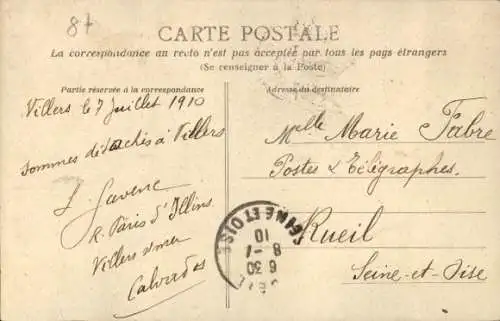 87
CARTE POSTALE
La correspondance au recto n'est pas acceptée par tous les pays étrangers
(Se renseigner à la Poste)
Partie réservée à la correspondance
Adresse du destinataire
Villers le 7 juillet 1910
Sommes détachés à Villers
R. Paris d'Illins
Villers s/mer
Calvados
Melle Marie Fabre
Postes & Télégraphes.
Rueil
Seine-et-Oise
SEINE ET OISE
6 30
8 -1
10